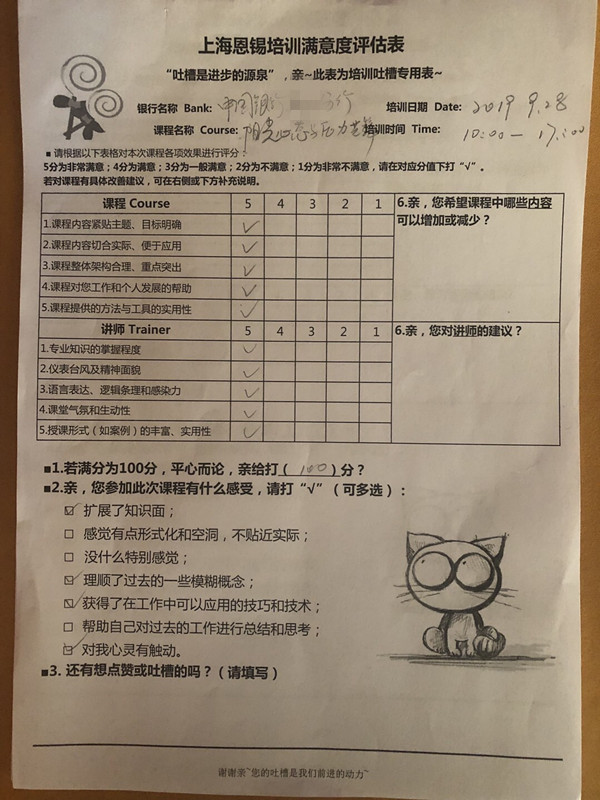 上海恩锡培训满意度评估表
“吐槽是进步的源泉”，亲~此表为培训吐槽专用表~
银行名称 Bank: 中国银行 分行 培训日期 Date: 2019 9.28
课程名称 Course: 阳光心态与压力 培训时间 Time: 10:00 — 17:00
■ 请根据以下表格对本次课程各项效果进行评分：
5分为非常满意；4分为满意；3分为一般满意；2分为不满意；1分为非常不满意，请在对应分值下打“√”。
若对课程有具体改善建议，可在右侧或下方补充说明。
课程 Course 5 4 3 2 1
1.课程内容紧贴主题、目标明确 ✓
2.课程内容切合实际、便于应用 ✓
3.课程整体架构合理、重点突出 ✓
4.课程对您工作和个人发展的帮助 ✓
5.课程提供的方法与工具的实用性 ✓
6.亲，您希望课程中哪些内容
可以增加或减少？
讲师 Trainer 5 4 3 2 1
1.专业知识的掌握程度 ✓
2.仪表台风及精神面貌 ✓
3.语言表达、逻辑条理和感染力 ✓
4.课堂气氛和生动性 ✓
5.授课形式（如案例）的丰富、实用性 ✓
6.亲，您对讲师的建议？
■1.若满分为100分，平心而论，亲给打（ 100 ）分？
■2.亲，您参加此次课程有什么感受，请打“√”（可多选）：
☑ 扩展了知识面；
□ 感觉有点形式化和空洞，不贴近实际；
□ 没什么特别感觉；
☑ 理顺了过去的一些模糊概念；
☑ 获得了在工作中可以应用的技巧和技术；
□ 帮助自己对过去的工作进行总结和思考；
☑ 对我心灵有触动。
■3. 还有想点赞或吐槽的吗？（请填写）
谢谢亲~您的吐槽是我们前进的动力~